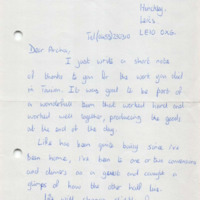 Hinckley,
Leics
LE10
Tel
Dear
I just write a short note
of thanks to you for the work you did
in Taiwan. It was great to be part of
a wonderfull team that worked hard and
worked well together, producing the goods
at the end of the day.
Life has been quite busy since I've
been home, I've been to one or two conventions
and dinners as a guest and caught a
glimps of how the other half live.
Life will